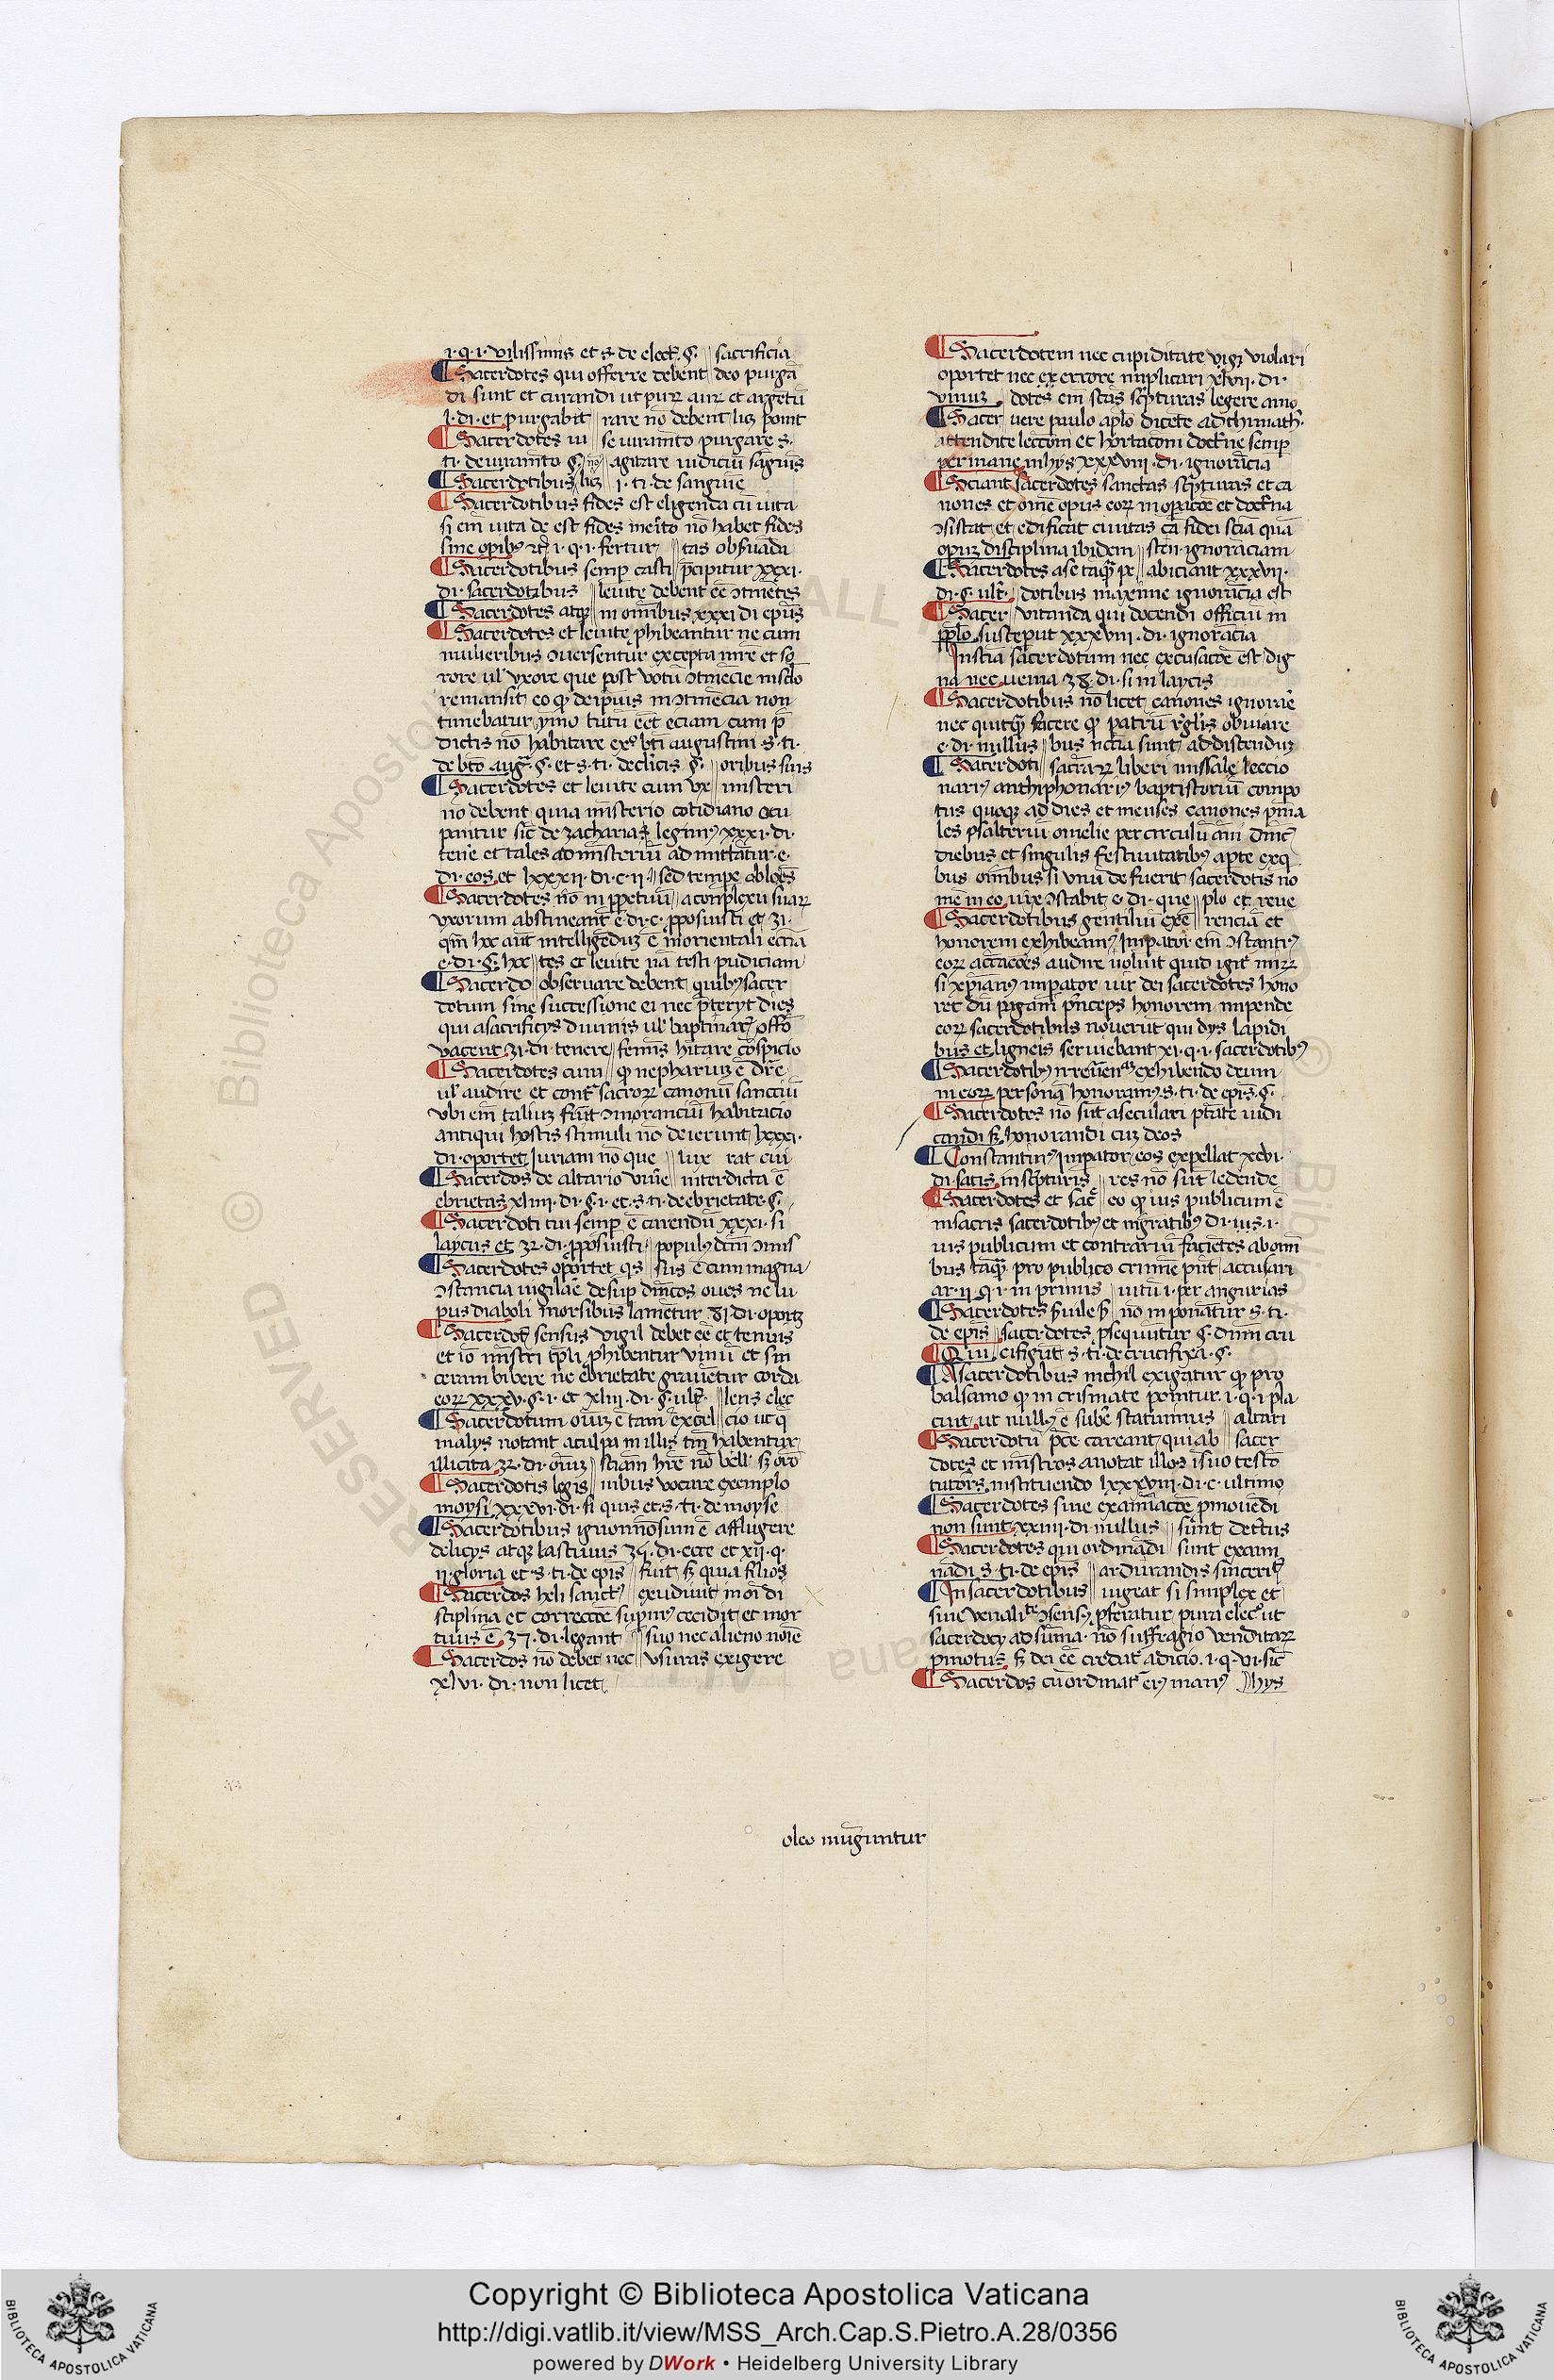 1·q·1· vilissimis et s̄ de elect̄· ⸹· ‖ sacrificia
¶ Sacerdotes qui offerre debent ‖ deo purgā
di sunt et curandi ut puꝝ auꝝ et argētū
l·di· et purgabit ‖ rare nō debent lꝫ po̅nt
¶ Sacerdotes iu ‖ se iuramēto purgare s̄·
ti· de iuramēto ⸹· ‖ agitare iudiciū sāguīs
¶ Sacerdotibus lꝫ ‖ j· ti· de sanguīe
¶ Sacerdotibus fides est eligenda cū uita
si em̄ uita de est fides merito nō habet fides
sine opibꝰ 1·q·1· fertur ‖ tas obs̄uāda
¶ Sacerdotibus semꝑ casti ‖ p̄cipitur xxxi·
di· sacerdotibus ‖ leuite debent eē ↄtinētes
¶ Sacerdotes atqꝫ ‖ in omībus xxxi di ep̄us
¶ Sacerdotes et leuite ꝓhibeantur ne cum
mulieribus ↄuersentur excepta mr̄e et so
rore ul̄ vxore que post votū ↄtinēcie in sclo
remansit eo ꝙ de ip̄uis in ↄtinēcia non
timebatur ymo tutū eēt eciam cum p̄
dictis nō habitare exº bt̄i augustini s̄· ti·
de bt̄o auḡ· ⸹· et s̄· ti· de cl̄icis ⸹· ‖ oribus suis
¶ Sacerdotes et leuite cum vx ‖ misteri
nō debent quia mīsterio cotidiano ocu
pantur sic̄ de zacharia legimꝰ xxxi· di·
tene et tales ad mīsteriū ad mittātur e·
di· eos et lxxxii· di· c· ii· ‖ sed tempe obloēs
¶ Sacerdotes nō in ꝑpetuū ‖ a complexu suaꝝ
vxorum abstineant e· di· c· ꝓposuisti et 31·
qm̄ hoc aūt intelligēduꝫ ē in orientali ecc̄ia
e· di· ⸹· hoc ‖ tes et leuite nā testi pudiciam
¶ Sacerdo ‖ obseruare debent quibꝰ sacer
dotum sine successione ei nec p̄teryt dies
qui a sacrificys diuinis ul̄ baptīnat offo
vacent 31· di· tenere ‖ femīs hītare cōspicio
¶ Sacerdotes cum ‖ ꝙ nephariuꝫ ē dr̄e
ul̄ audire et cont̄ sacroꝝ canonū sancciū
vbi em̄ taliuꝫ fūt ↄmoranciū habitacio
antiqui hostis stimuli nō deierunt lxxxi·
di· oportet Juriam nō que ‖ lux rat cui
¶ Sacerdos de altario viuīe ‖ interdicta ē
ebrietas xliiii· di· ⸹·1· et s̄· ti· de ebrietate ⸹·
¶ Sacerdoti cui semꝑ ē carendū xxxi· si
laycus et 32· di· ꝓposuisti ‖ populꝰ dc̄m ↄmis
¶ Sacerdotes oportet qs ‖ sus ē cum magna
ↄstancia uigilāe desuꝑ dn̄icos oues ne lu
pus diaboli morsibus lanietur 81 di· oportꝫ
¶ Sacerdot̄ sensus vigil debet eē et tenuis
et io mīstri tp̄li ꝓhibentur vinū et sin
ceram bibere ne ebrietate grauētur corda
eoꝝ xxxv· ⸹·1· et xliii· di· ⸹· ult̄· ‖ lens elec
¶ Sacerdotum oīuꝫ ē tam excel ‖ cio ut q̄
malys notant a culpa in illis tn̄ habentur
illicita 32· di· oīuꝫ ‖ sciam hr̄e nō bell̄ sꝫ oro
¶ Sacerdotis legis ‖ inibus vocare exemplo
moysi xxxvi· di· si quis et s̄· ti· de moyse
¶ Sacerdotibus ignominosum ē affluere
delicys atqꝫ lasciuiis 35· di· ecce et xii· q·
ii· gloria et s̄· ti· de ep̄is ‖ fuit sꝫ quia filios
¶ Sacerdos heli sanctꝰ ‖ exudiuit in oi di
sciplina et correccōe supiꝰ cecidit et mor
tuus ē 37· di· legant ‖ suo nec alieno noīe
¶ Sacerdos nō debet nec ‖ vsuras exigere
xlvi· di· non licet
¶ Sacerdotem nec cupiditate viꝫ violari
oportet nec ex errore implicari xlvii· di·
vinuꝫ ‖ dotes em̄ scās sc̄pturas legere amo
¶ Sacer ‖ uere paulo aplō dicēte ad thimoth̄·
attendite leccōm et hortacōni doct̄ne semꝑ
permane in hys xxxviii· di· ignorācia
¶ Sciant sacerdotes sanctas sc̄pturas et ca
nones et omē opus eoꝝ in opacōe et doct̄na
ↄsistat et edificāt ciuitas tā fidei scīa quā
opuꝫ disciplina ibidem ‖ stem ignoraciam
¶ Sacerdotes a se taqꝫ pe ‖ abiciant xxxvii·
di· ⸹· ult̄· ‖ dotibus maxime ignorācia est
¶ Sacer ‖ vitanda qui docendi officiū in
pplō susceput xxxviii· di· ignorācia
Inscīa sacerdotum nec excusacōe est dig
na nec uenia 38· di· si in laycis
¶ Sacerdotibus nō licet canones ignorare
nec quitqꝫ facere ꝙ patrū r̄glis obuiare
e· di· nullus ‖ bus nccīa sunt ad discenduꝫ
¶ Sacerdoti ‖ sacrāꝝ liberi missale leccio
nariꝰ anthiphonariꝰ baptistoriū compo
tus quoqꝫ ad dies et menses canones pnīa
les psalteriū omelie per circulū anni dn̄ic̄
diebus et singulis festiuitatibꝰ apte ex q
bus omībus si vnū de fuerit sacerdotis no
mē in eo uix ↄstabit e· di· que ‖ plo et reue
¶ Sacerdotibus gentiliū exē ‖ renciā et
honorem exhibeamꝰ Impator em̄ ↄstantiꝰ
eoꝝ accacōes audire noluit quid igit̄ miꝝ
si xp̄ianꝰ imperator uir dei sacerdotes hono
ret dū pagani p̄nceps honorem impende
eoꝝ sacerdotibus nouerūt qui dys lapidi
bus et ligneis seruiebant xi· q·1· sacerdotibꝰ
¶ Sacerdotibꝰ reuēnciā exhibendo deum
in eoꝝ persona honoramꝰ s̄· ti· de ep̄is ⸹·
¶ Sacerdotes nō sūt a seculari ptāte iudi
candi sꝫ honorandi cuꝫ deos
¶ Constantinꝰ Imperator eos expellat xcvi·
di· satis in sc̄pturis ‖ res nō sūt ledende
¶ Sacerdotes et sac̄ ‖ eo ꝙ ius publicum ē
in sacris sacerdotibꝰ et mgratibꝰ di· ius·1·
ius publicum et contrariū faciētes ab omī
bus taqꝫ pro publico crimine pn̄t accusari
ar· ii· q·1· in primis ‖ uitū 1· per angarias
¶ Sacerdotes s̄uile ‖ nō in ponātur s̄· ti·
de ep̄is ‖ sacerdotes ꝑsequūtur ⸹· dn̄m cru
¶ Qui ‖ cifigūt s̄· ti· de crucifixa· ⸹·
¶ A sacerdotibus nichil exigatur ꝙ pro
balsamo ꝙ in crismate ponitur 1· q·1· pla
cuit ut nullꝰ ē sub̄e statuimus ‖ altari
¶ Sacerdotū p̄ce careant qui ab ‖ sacer
dotes et mīstros auotat illos ī suo testō
tutōrs instituendo lxxxviii· di· c· ultimo
¶ Sacerdotes siue examīacōe pmouēdi
non sunt xxiiii· di nullus ‖ sunt dectus
¶ Sacerdotes qui ordinādi ‖ sunt exam
nādi s̄· ti· de ep̄is ‖ ardurandis sincerit̄
¶ In sacerdotibus ‖ uigeat si simplex et
siue venalit̄ ↄsensꝰ p̄feratur pura elecº ut
sacerdocy ad sūma nō suffragio venditaꝝ
pmotus sꝫ dei eē credat̄ adicio· 1· q· vi· sic̄
¶ Sacerdos cū ordinat̄ eiꝰ manꝰ ‖ hys
oleo inūguntur
Copyright © Biblioteca Apostolica Vaticana
http://digi.vatlib.it/view/MSS_Arch.Cap.S.Pietro.A.28/0356
powered by DWork • Heidelberg University Library